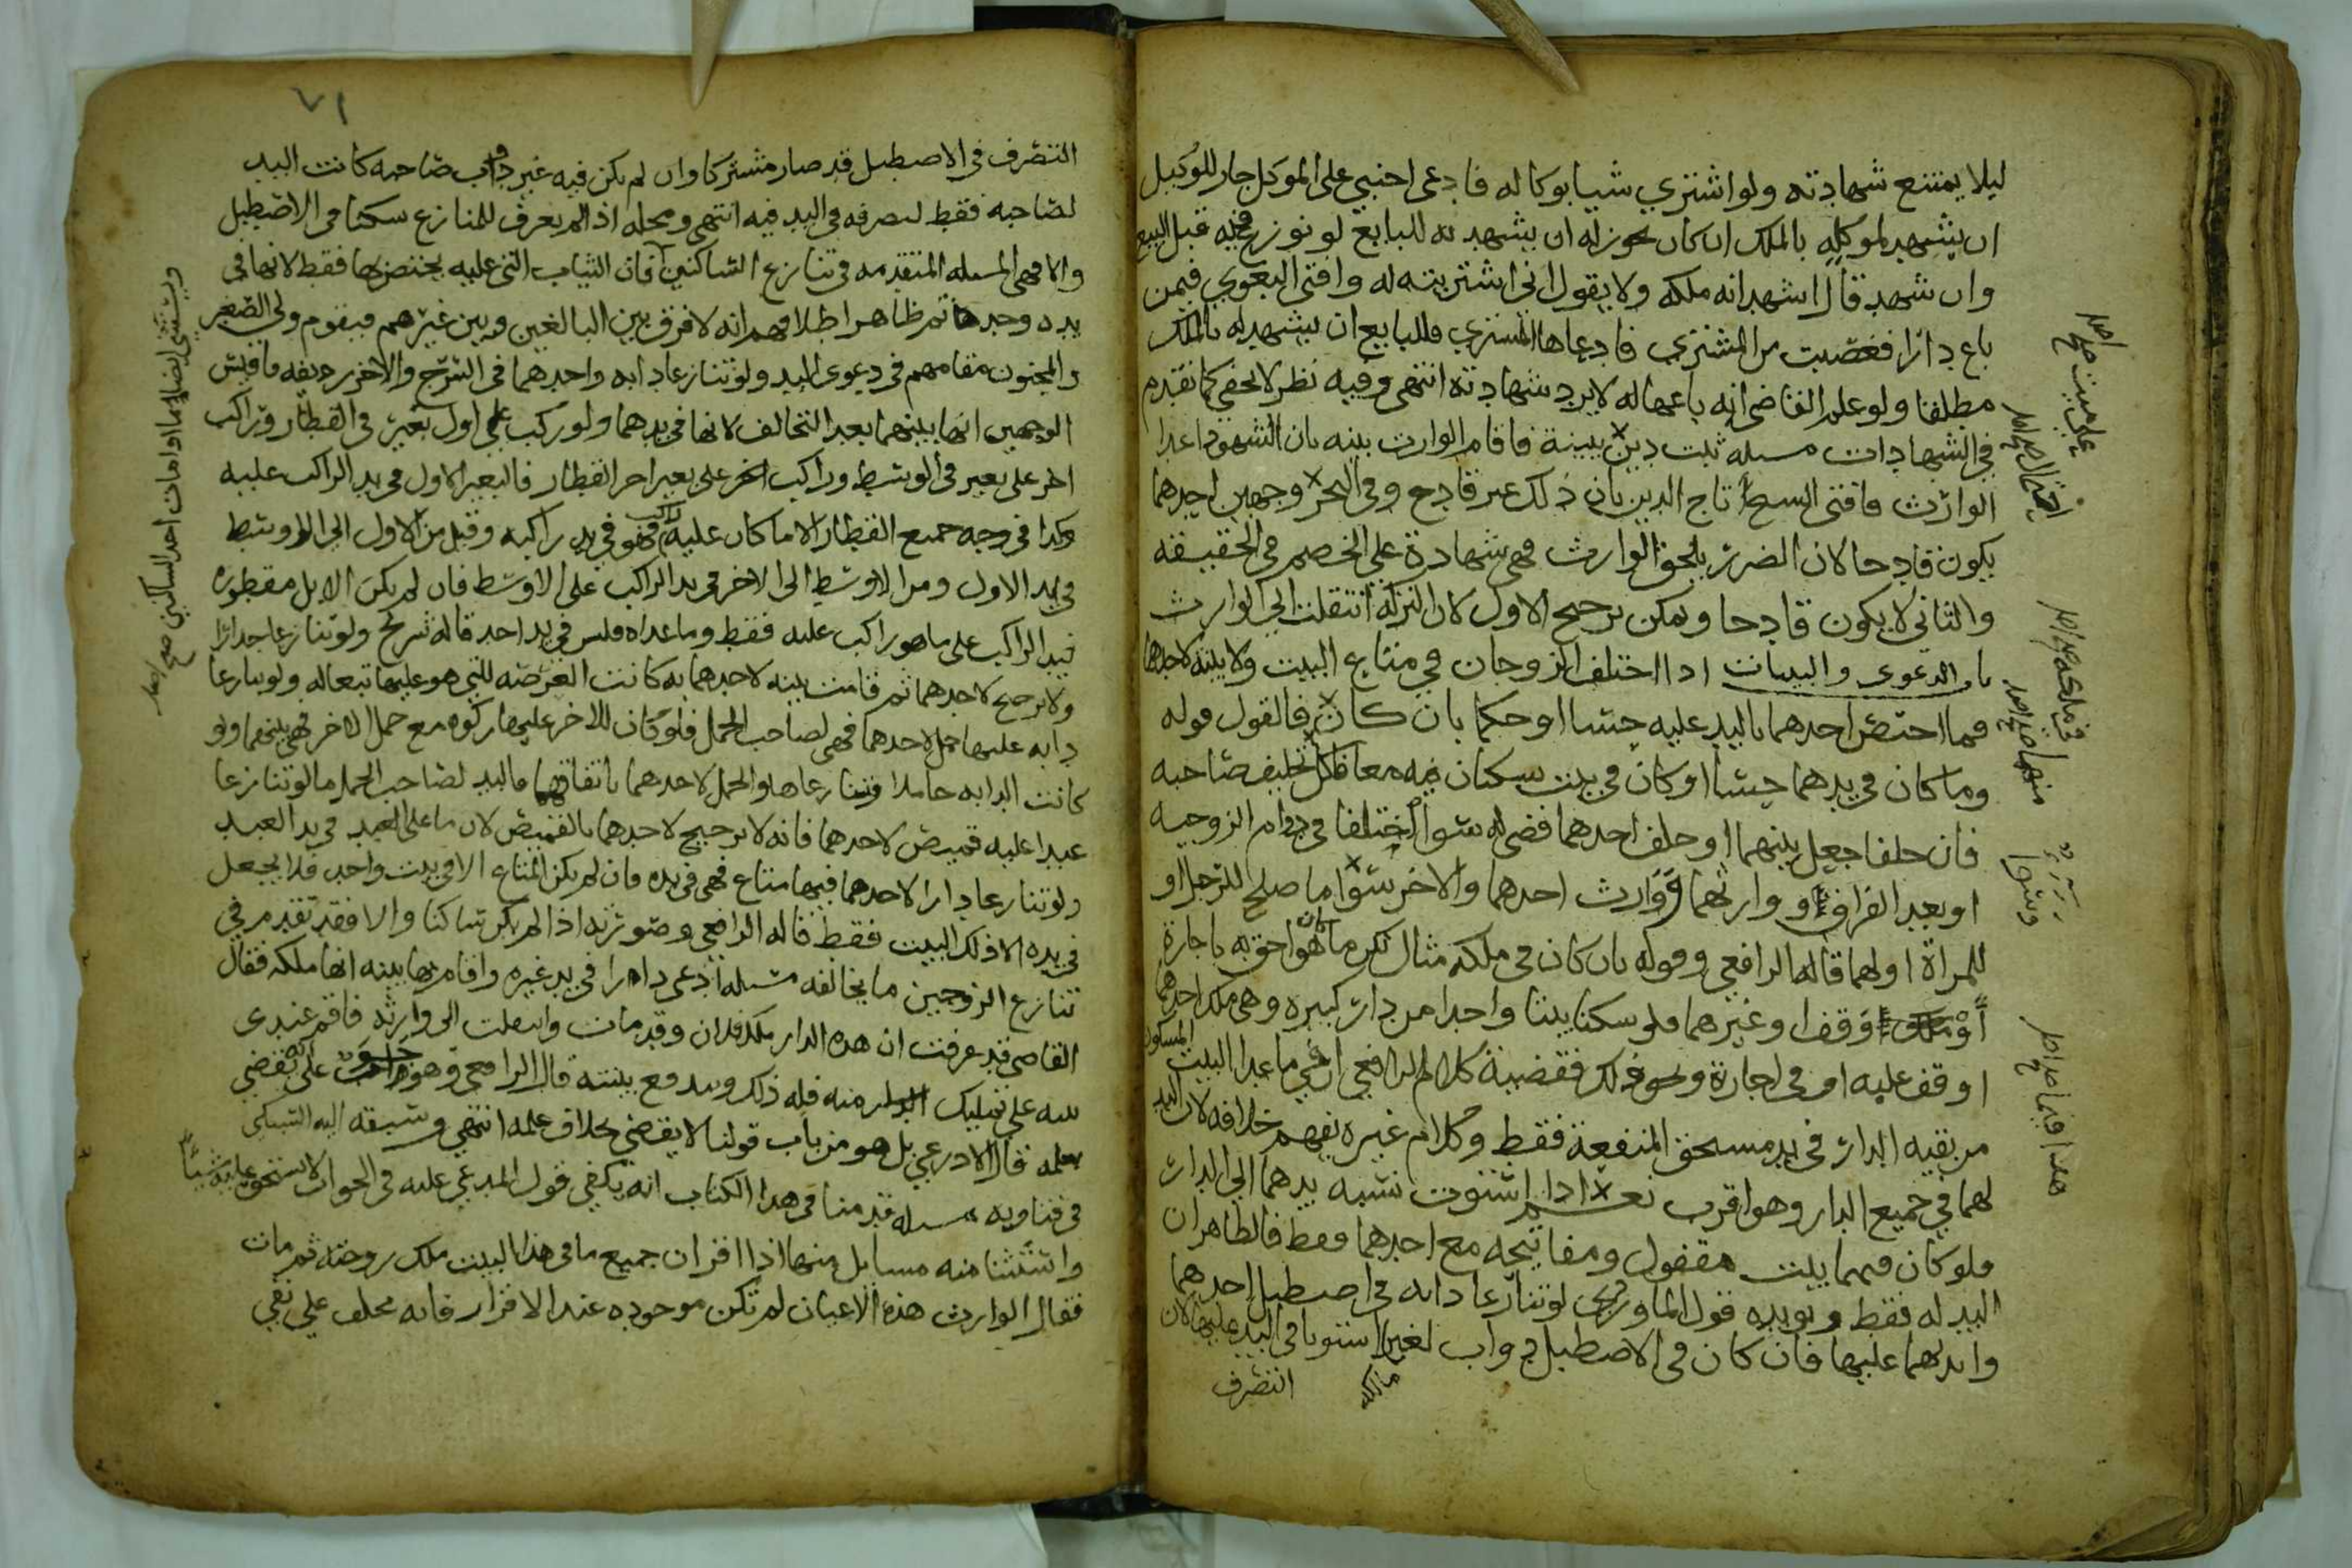 ليلا يمتنع شهادته ولو اشتري شيا بوكاله فادعى اجنبي على الموكل جاز للوكيل
ان يشهد لموكله بالملك ان كان له ان يشهد به للبايع لو نوزع فيه قبل البيع
وان شهد قال اشهد انه ملكه ولا يقول انى اشتريته له وافتى البغوي فيمن
باع دارا فغصبت من المشتري فادعاها المشتري فللبايع ان يشهد له بالملك
مطلقا ولو علم القاضى انه باعها له لا يرد شهادته انتهى وفيه نظر لا يخفى كما تقدم
في الشهادات مسله ثبت دين ببينة فاقام الوارث بينه بان الشهود اعدا
الوارث فافتى الشيخ تاج الدين بان ذلك غير قادح وفي البحر وجهين احدهما
يكون قادحا لان الضرر يلحق الوارث فهى شهادة على الخصم في الحقيقه
والثاني لا يكون قادحا ويمكن ترجيح الاول لان التركه انتقلت الى الوارث
باب الدعوى والبينات اذا اختلف الزوجان في متاع البيت ولا بينه لاحدهما
فما اختص احدهما باليد عليه حسا او حكما بان كان فالقول قوله
وما كان في يدهما حسا او كان في بيت يسكنان فيه معا فلكل تحليف صاحبه
فان حلفا جعل بينهما او حلف احدهما قضى له سوا اختلفا في دوام الزوجيه
او بعد الفراق او وارثهما او وارث احدهما والاخر سوا ما صلح للرجل او
للمراة او لهما قاله الرافعي وقوله بان كان في ملكه مثال لكن ما هو احق به باجارة
او وقف او غيرهما فلو سكنا بيتا واحدا من دار كبيره وهى ملك احدهما
او وقف عليه او في اجارة ونحو ذلك فقضية كلام الرافعي ان في ما عدا البيت المسكون
من بقيه الدار في يد مستحق المنفعة فقط وكلام غيره يفهم خلافه لان اليد
لهما في جميع الدار وهو اقرب نعم اذا استوت نسبه يدهما الى الدار
فلو كان فيهما بيت مقفول ومفاتيحه مع احدهما فقط فالظاهر ان
اليد له فقط ويويده قول الماوردى لو تنازعا دابه في اصطبل احدهما
وايديهما عليها فان كان في الاصطبل دواب لغير مالكه استويا في اليد عليها لان
التصرف
على ميت صح اصل
صح اصل
منها صح اصل
ومنها
هذا فيما صح اصل
٧١
التصرف في الاصطبل قد صار مشتركا وان لم يكن فيه غير دواب صاحبه كانت اليد
لصاحبه فقط لتصرفه في اليد فيه انتهى ومحله اذا لم يعرف للمنازع سكنا في الاصطبل
والا فهى المسله المتقدمه في تنازع الساكنين فان الثياب التي عليه يختص بها فقط لانها في
يده وحده ثم ظاهر اطلاقهم انه لا فرق بين البالغين وبين غيرهم فيقوم ولي الصغير
والمجنون مقامهم في دعوى اليد ولو تنازعا دابه واحدهما في السرج والاخر رديفه فاقيس
الوجهين انها بينهما بعد التحالف لانها في يدهما ولو ركب على اول بعير في القطار وراكب
اخر على بعير في الوسط وراكب اخر على بعير اخر القطار فالبعير الاول في يد الراكب عليه
وكذا في وجه جميع القطار الا ما كان عليه راكب فهو في يد راكبه وقيل من الاول الى الاوسط
في يد الاول ومن الاوسط الى الاخر في يد الراكب على الاوسط فان لم يكن الابل مقطوره
فيد الراكب على ما هو راكب عليه فقط وما عداه فليس في يد احد قاله شريح ولو تنازعا جدارا
ولا ترجيح لاحدهما ثم قامت بينه لاحدهما به كانت العرصه التي هو عليها تبعا له ولو تنازعا
دابه عليها حمل لاحدهما فهى لصاحب الحمل فلو كان للاخر عليها ركوه مع حمل الاخر فهى بينهما ولو
كانت الدابه حاملا وتنازعاها والحمل لاحدهما باتفاقهما فاليد لصاحب الحمل ما لو تنازعا
عبدا عليه قميص لاحدهما فانه لا ترجيح لاحدهما بالقميص لان ما على العبد في يد العبد
ولو تنازعا دارا لاحدهما فيها متاع فهى في يده فان لم يكن المتاع الا في بيت واحد فلا يجعل
في يده الا ذلك البيت فقط قاله الرافعي وصورته اذا لم يكن ساكنا والا فقد تقدم في
تنازع الزوجين ما يخالفه مسله ادعى دارا في يد غيره واقام بها بينه انها ملكه فقال
القاضي قد عرفت ان هذه الدار ملك فلان وقد مات وانتقلت الى وارثه فاقم عندى
بينه على تمليك الدار منه فله ذلك وتندفع بينته قال الرافعي وهو جواب على انه يقضي
بعلمه قال الاذرعي بل هو من باب قولنا لا يقضي بخلاف علمه انتهى وسبقه اليه السبكى
في فتاويه مسله قدمنا في هذا الكتاب انه يكفي قول المدعي عليه في الجواب لا تستحق عليه شيئا
واستثنا منه مسايل منها اذا اقر ان جميع ما في هذا البيت ملك زوجته ثم مات
فقال الوارث هذه الاعيان لم تكن موجوده عند الاقرار فانه يحلف على نفي
ويستثنى ايضا احد الساكنين صح اصل